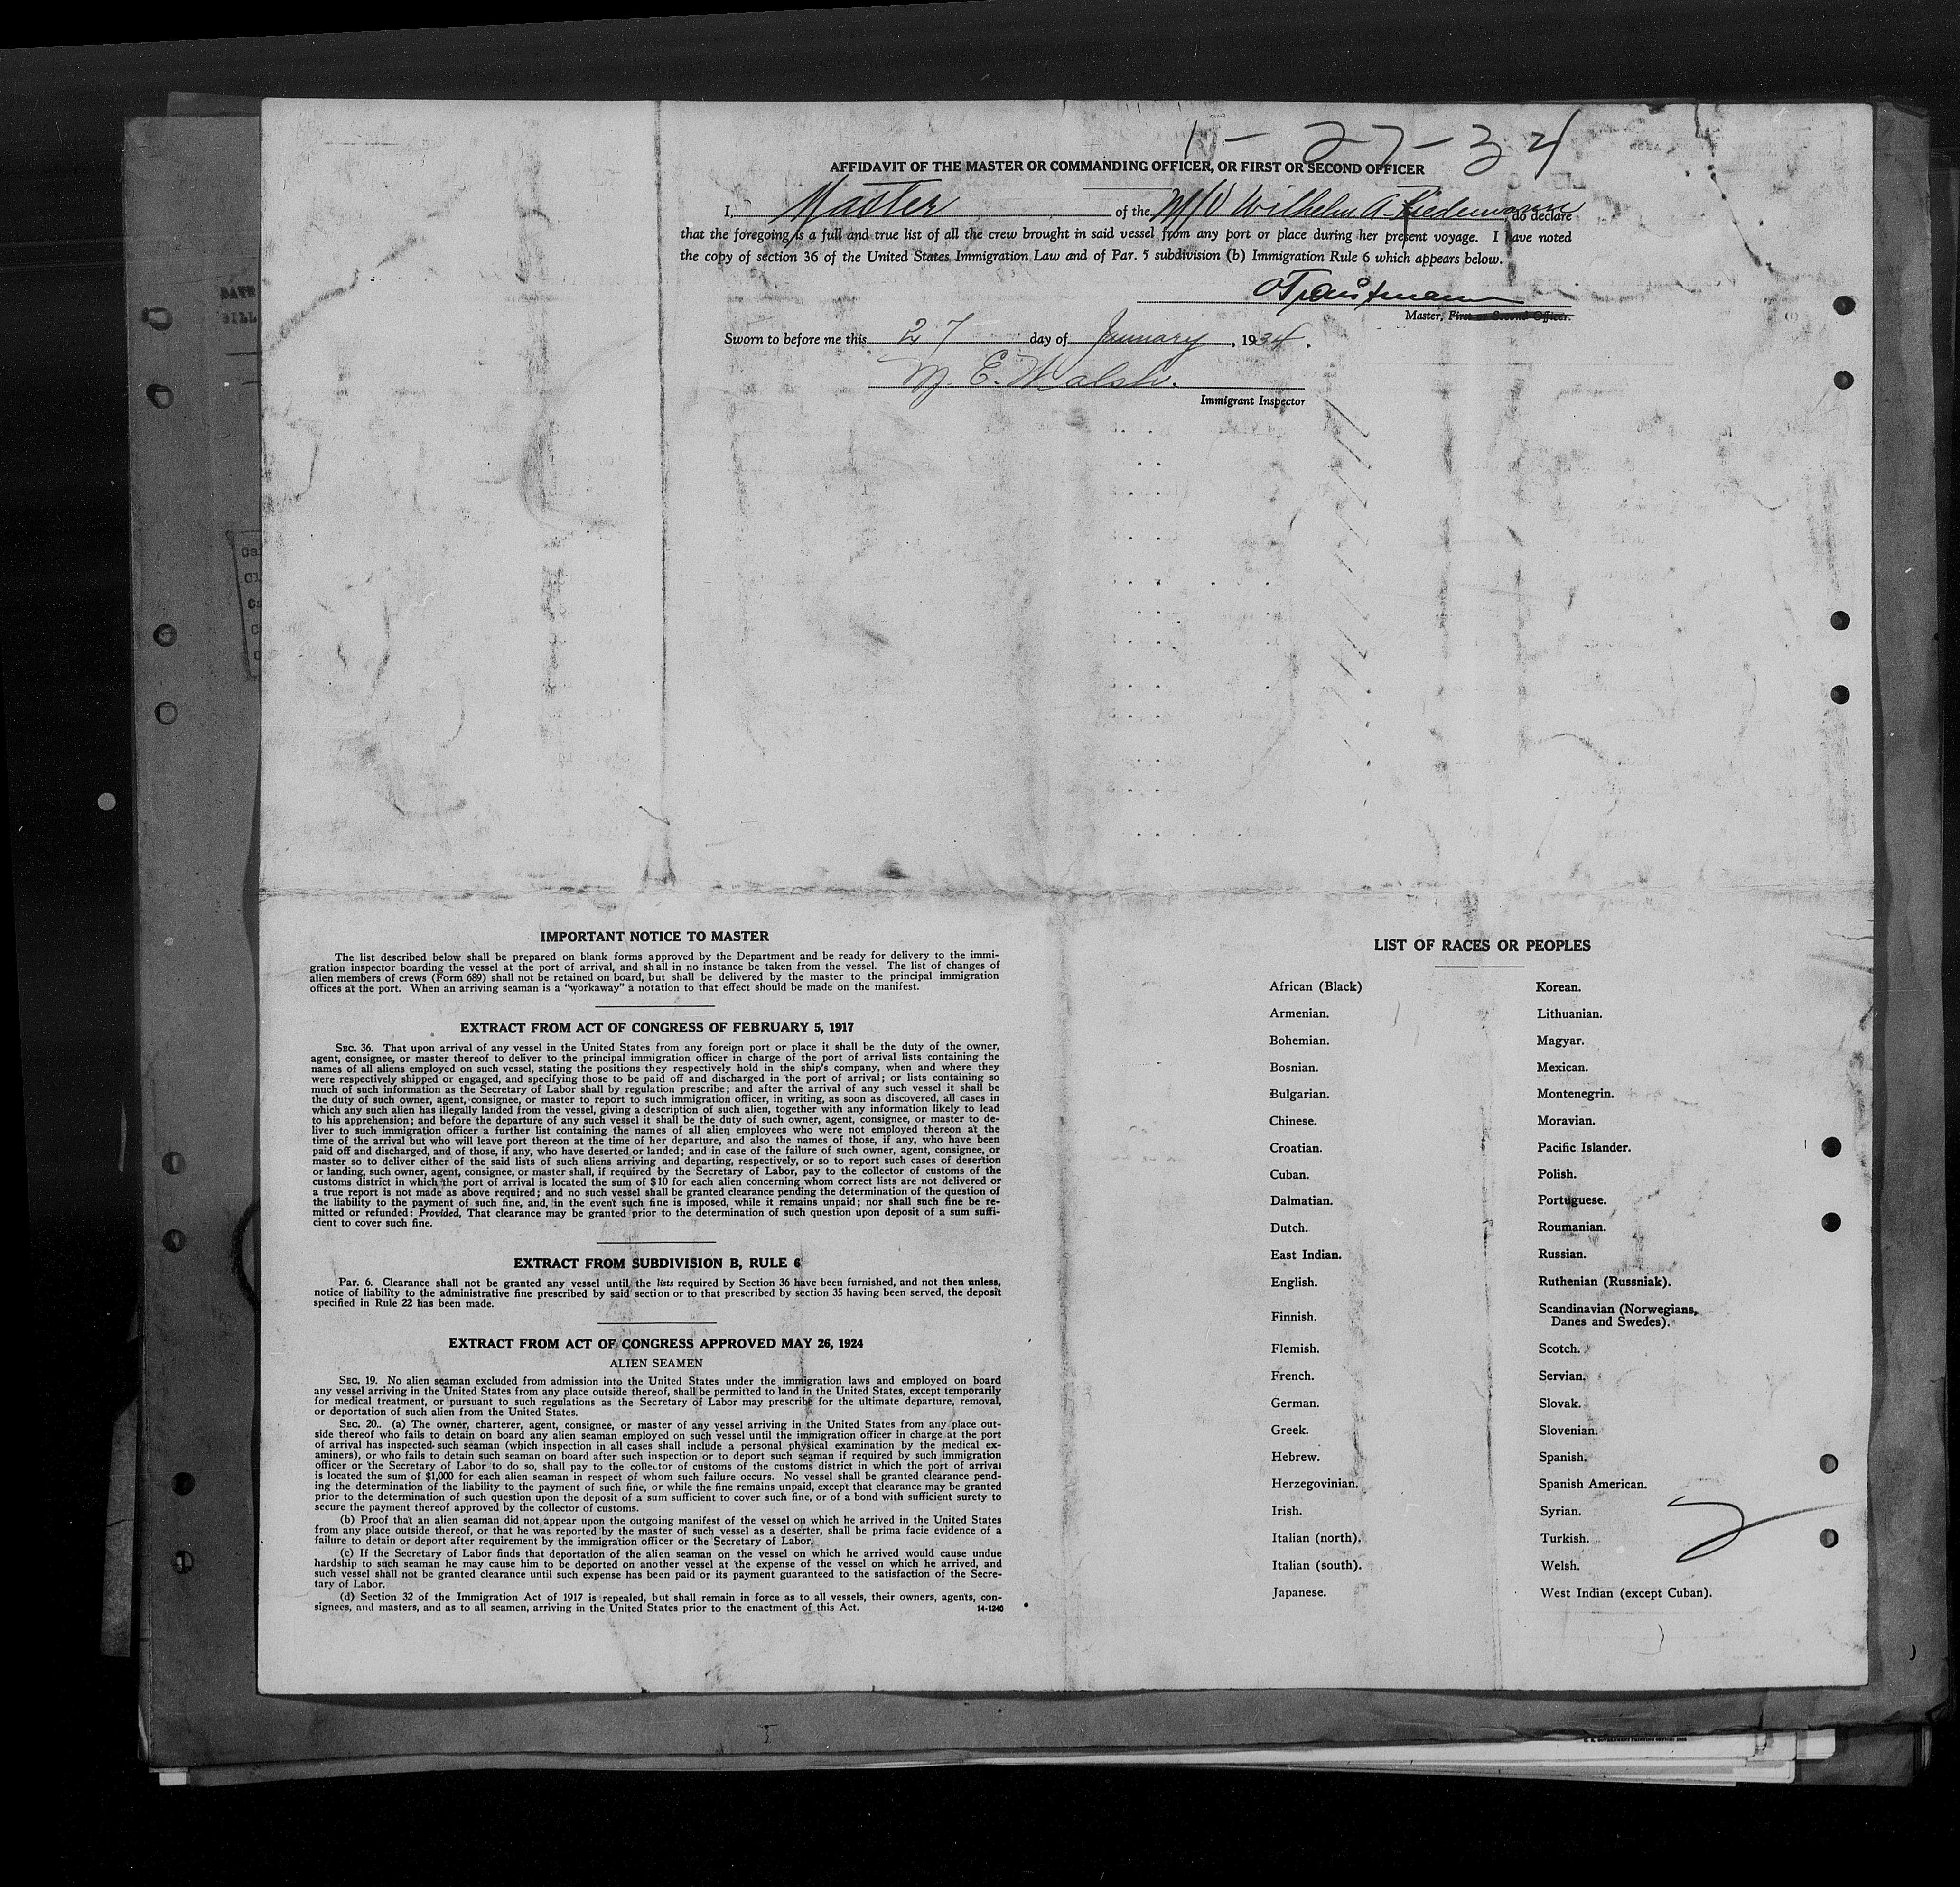 1-27-34
AFFIDAVIT OF THE MASTER OR COMMANDING OFFICER, OR FIRST OR SECOND OFFICER
I, Master of the M/V Wilhelm A. Riedemann, do declare
that the foregoing is a full and true list of all the crew brought in said vessel from any port or place during her present voyage. I have noted
the copy of section 36 of the United States Immigration Law and of Par. 5 subdivision (b) Immigration Rule 6 which appears below.
OTrautmann
Master, First or Second Officer.
Sworn to before me this 27 day of January, 1934.
M. E. Walsh.
Immigrant Inspector
IMPORTANT NOTICE TO MASTER
The list described below shall be prepared on blank forms approved by the Department and be ready for delivery to the immi-
gration inspector boarding the vessel at the port of arrival, and shall in no instance be taken from the vessel. The list of changes of
alien members of crews (Form 689) shall not be retained on board, but shall be delivered by the master to the principal immigration
offices at the port. When an arriving seaman is a "workaway" a notation to that effect should be made on the manifest.
EXTRACT FROM ACT OF CONGRESS OF FEBRUARY 5, 1917
SEC. 36. That upon arrival of any vessel in the United States from any foreign port or place it shall be the duty of the owner,
agent, consignee, or master thereof to deliver to the principal immigration officer in charge of the port of arrival lists containing the
names of all aliens employed on such vessel, stating the positions they respectively hold in the ship's company, when and where they
were respectively shipped or engaged, and specifying those to be paid off and discharged in the port of arrival; or lists containing so
much of such information as the Secretary of Labor shall by regulation prescribe; and after the arrival of any such vessel it shall be
the duty of such owner, agent, consignee, or master to report to such immigration officer, in writing, as soon as discovered, all cases in
which any such alien has illegally landed from the vessel, giving a description of such alien, together with any information likely to lead
to his apprehension; and before the departure of any such vessel it shall be the duty of such owner, agent, consignee, or master to de-
liver to such immigration officer a further list containing the names of all alien employees who were not employed thereon at the
time of the arrival but who will leave port thereon at the time of her departure, and also the names of those, if any, who have been
paid off and discharged, and of those, if any, who have deserted or landed; and in case of the failure of such owner, agent, consignee, or
master so to deliver either of the said lists of such aliens arriving and departing, respectively, or so to report such cases of desertion
or landing, such owner, agent, consignee, or master shall, if required by the Secretary of Labor, pay to the collector of customs of the
customs district in which the port of arrival is located the sum of $10 for each alien concerning whom correct lists are not delivered or
a true report is not made as above required; and no such vessel shall be granted clearance pending the determination of the question of
the liability to the payment of such fine, and, in the event such fine is imposed, while it remains unpaid; nor shall such fine be re-
mitted or refunded: Provided, That clearance may be granted prior to the determination of such question upon deposit of a sum suffi-
cient to cover such fine.
EXTRACT FROM SUBDIVISION B, RULE 6
Par. 6. Clearance shall not be granted any vessel until the lists required by Section 36 have been furnished, and not then unless,
notice of liability to the administrative fine prescribed by said section or to that prescribed by section 35 having been served, the deposit
specified in Rule 22 has been made.
EXTRACT FROM ACT OF CONGRESS APPROVED MAY 26, 1924
ALIEN SEAMEN
SEC. 19. No alien seaman excluded from admission into the United States under the immigration laws and employed on board
any vessel arriving in the United States from any place outside thereof, shall be permitted to land in the United States, except temporarily
for medical treatment, or pursuant to such regulations as the Secretary of Labor may prescribe for the ultimate departure, removal,
or deportation of such alien from the United States.
SEC. 20. (a) The owner, charterer, agent, consignee, or master of any vessel arriving in the United States from any place out-
side thereof who fails to detain on board any alien seaman employed on such vessel until the immigration officer in charge at the port
of arrival has inspected such seaman (which inspection in all cases shall include a personal physical examination by the medical ex-
aminers), or who fails to detain such seaman on board after such inspection or to deport such seaman if required by such immigration
officer or the Secretary of Labor to do so, shall pay to the collector of customs of the customs district in which the port of arrival
is located the sum of $1,000 for each alien seaman in respect of whom such failure occurs. No vessel shall be granted clearance pend-
ing the determination of the liability to the payment of such fine, or while the fine remains unpaid, except that clearance may be granted
prior to the determination of such question upon the deposit of a sum sufficient to cover such fine, or of a bond with sufficient surety to
secure the payment thereof approved by the collector of customs.
(b) Proof that an alien seaman did not appear upon the outgoing manifest of the vessel on which he arrived in the United States
from any place outside thereof, or that he was reported by the master of such vessel as a deserter, shall be prima facie evidence of a
failure to detain or deport after requirement by the immigration officer or the Secretary of Labor.
(c) If the Secretary of Labor finds that deportation of the alien seaman on the vessel on which he arrived would cause undue
hardship to such seaman he may cause him to be deported on another vessel at the expense of the vessel on which he arrived, and
such vessel shall not be granted clearance until such expense has been paid or its payment guaranteed to the satisfaction of the Secre-
tary of Labor.
(d) Section 32 of the Immigration Act of 1917 is repealed, but shall remain in force as to all vessels, their owners, agents, con-
signees, and masters, and as to all seamen, arriving in the United States prior to the enactment of this Act.
14-1240
LIST OF RACES OR PEOPLES
African (Black)
Armenian.
Bohemian.
Bosnian.
Bulgarian.
Chinese.
Croatian.
Cuban.
Dalmatian.
Dutch.
East Indian.
English.
Finnish.
Flemish.
French.
German.
Greek.
Hebrew.
Herzegovinian.
Irish.
Italian (north).
Italian (south).
Japanese.
Korean.
Lithuanian.
Magyar.
Mexican.
Montenegrin.
Moravian.
Pacific Islander.
Polish.
Portuguese.
Roumanian.
Russian.
Ruthenian (Russniak).
Scandinavian (Norwegians,
Danes and Swedes).
Scotch.
Servian.
Slovak.
Slovenian.
Spanish.
Spanish American.
Syrian.
Turkish.
Welsh.
West Indian (except Cuban).